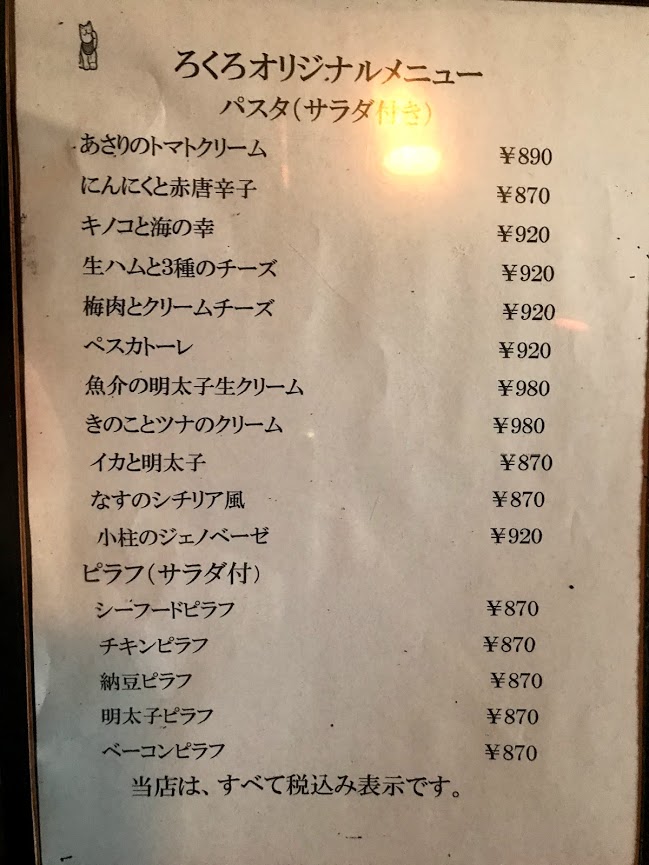 ろくろオリジナルメニュー
パスタ(サラダ付き)
あさりのトマトクリーム ¥890
にんにくと赤唐辛子 ¥870
キノコと海の幸 ¥920
生ハムと3種のチーズ ¥920
梅肉とクリームチーズ ¥920
ペスカトーレ ¥920
魚介の明太子生クリーム ¥980
きのことツナのクリーム ¥980
イカと明太子 ¥870
なすのシチリア風 ¥870
小柱のジェノベーゼ ¥920
ピラフ(サラダ付)
シーフードピラフ ¥870
チキンピラフ ¥870
納豆ピラフ ¥870
明太子ピラフ ¥870
ベーコンピラフ ¥870
当店は、すべて税込み表示です。